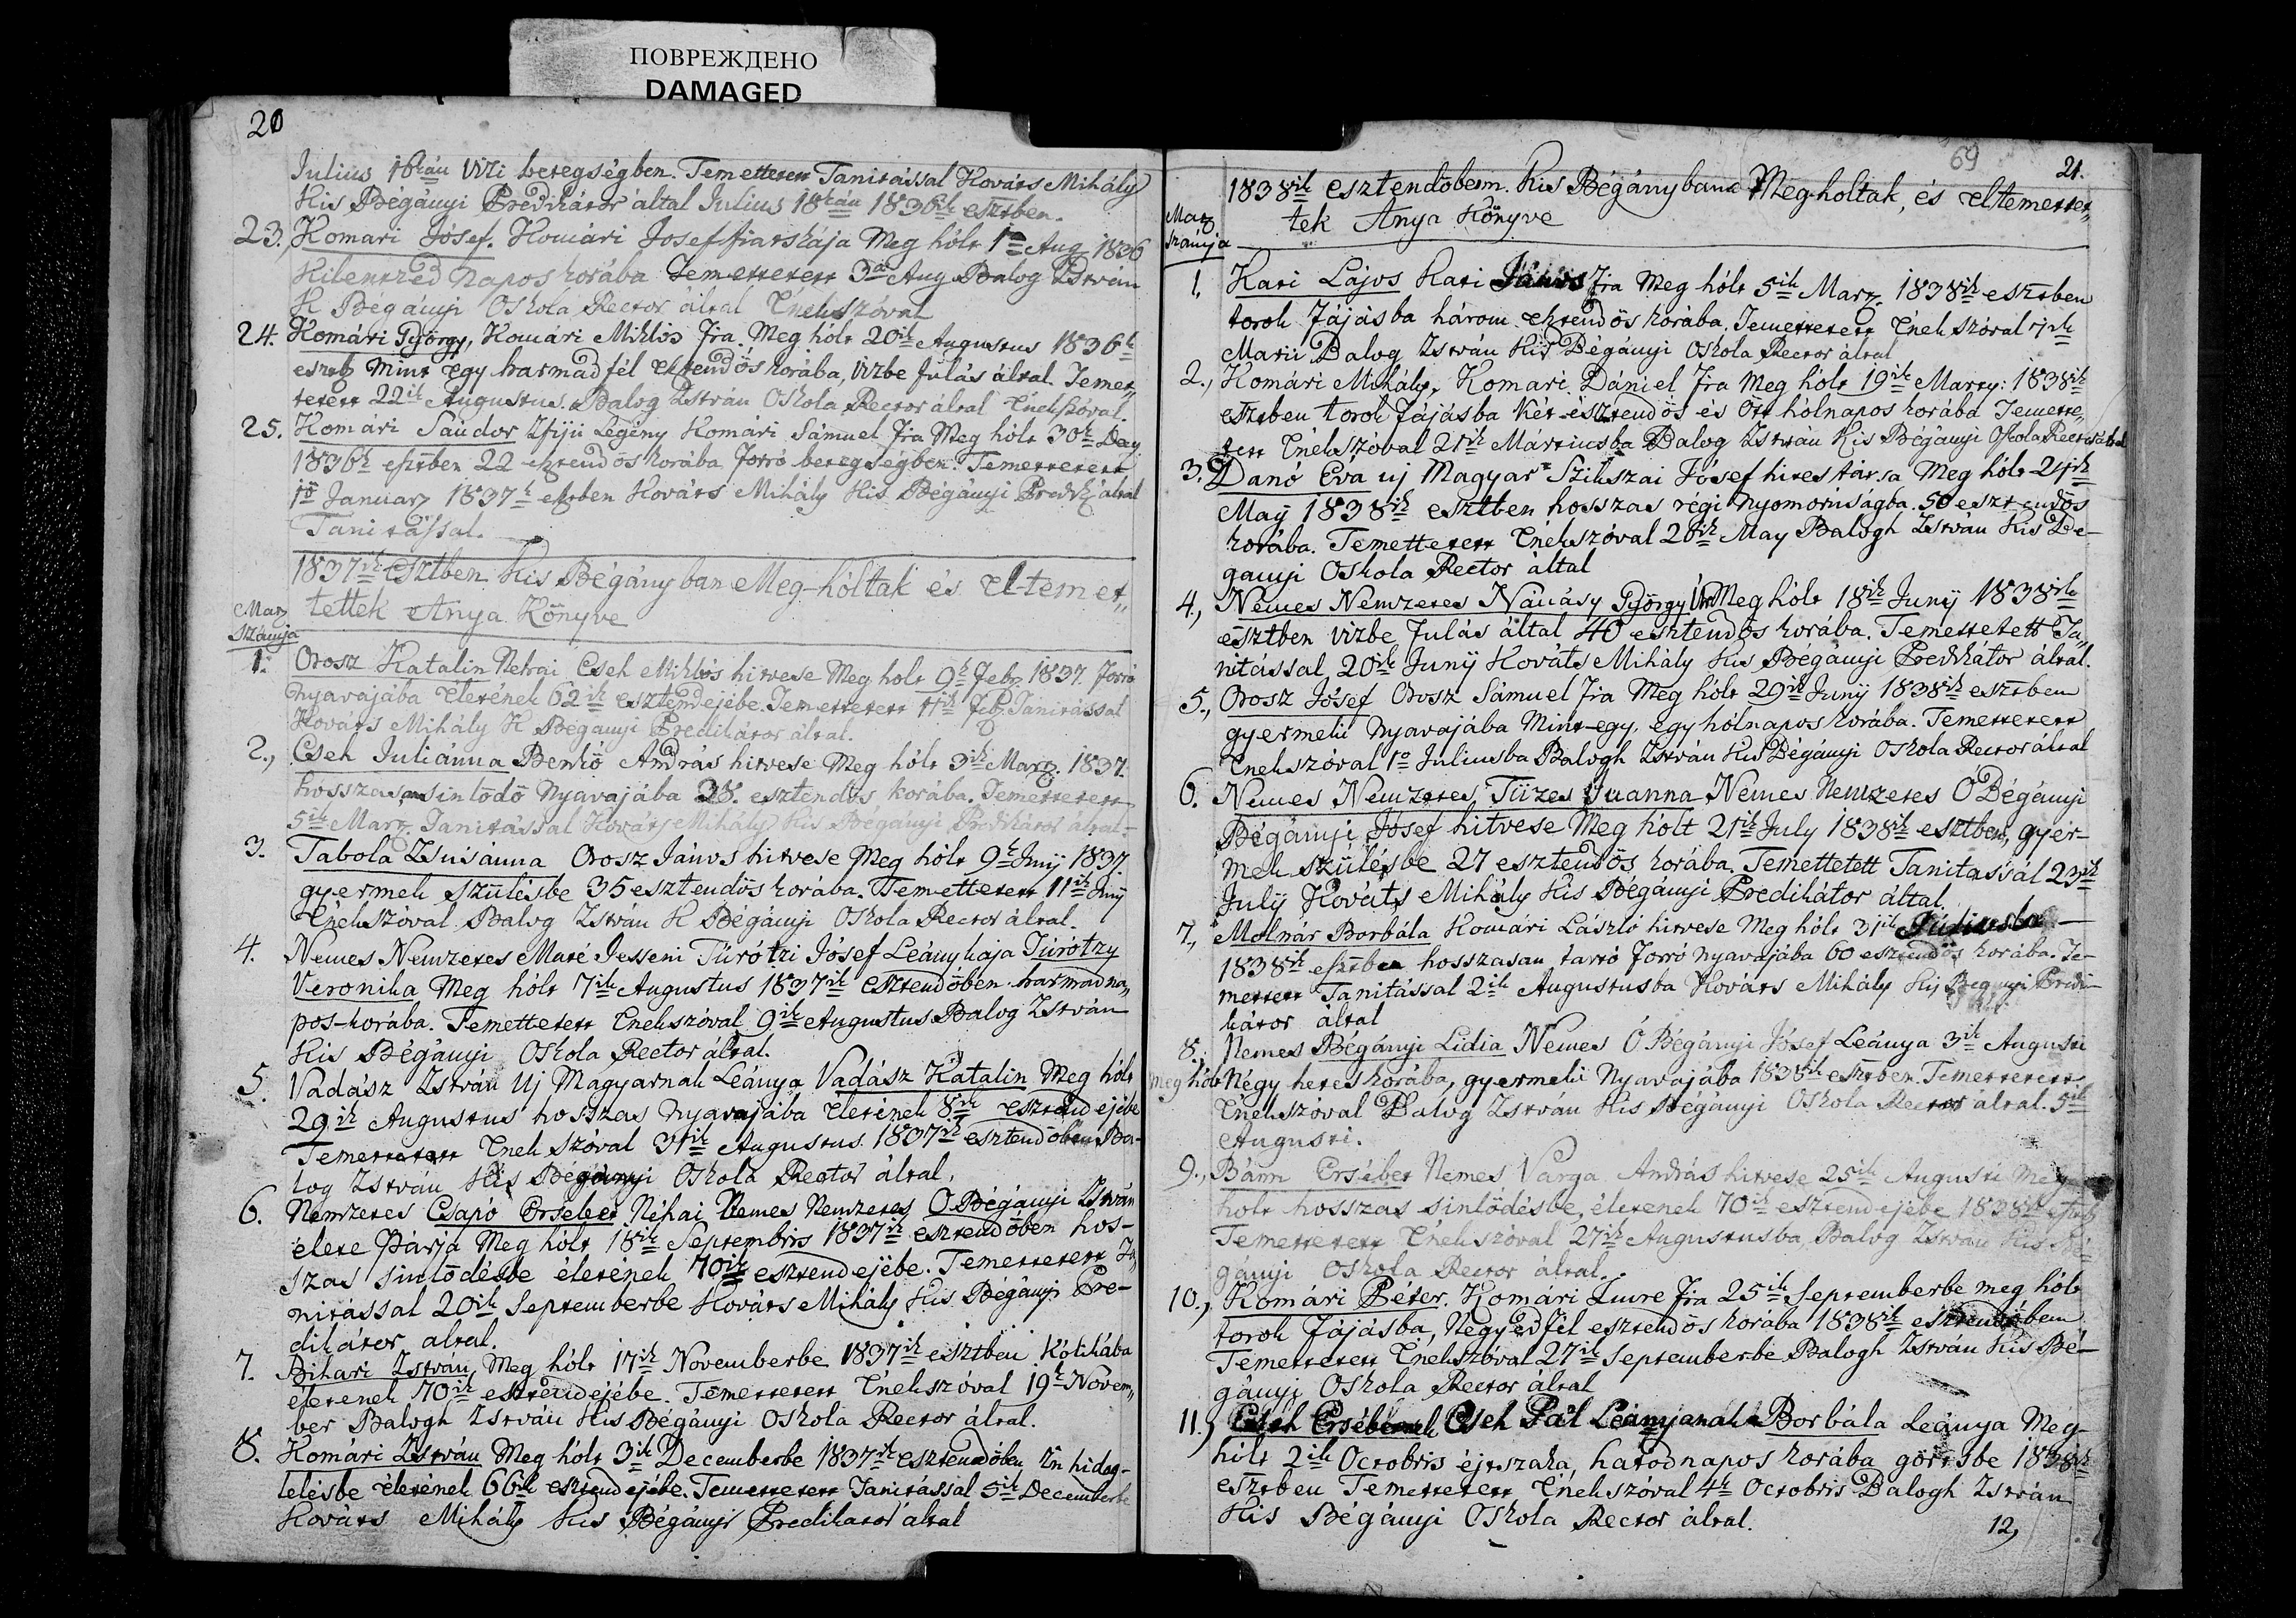 ПОВРЕЖДЕНО
DAMAGED
20
Julius 16kán vizi betegségben. Temettetett Tanitással Kováts Mihály
Kis Bégányi Prédikátor által Julius 18kán 1836ik esztben.
23. Komari Jósef. Komári Josef fiatskája Meg hólt 1ő Aug 1836
Kilentzed napos korába Temettetett 3a Aug Balog István
K Bégányi Oskola Rector által Énekszóval
24. Komári György, Komári Miklós fia. Meg hólt 20ik Augustus 1836k
esztb Mint egy harmad fél esztendős korába, vizbe fulás által. Temet„
tetett 22ik Augustus. Balog István Oskola Rector által Énekszóval.
25. Komári Sándor Ifijú Legény Komári Sámuel fia Meg hólt 30k
1836k esztben 22 esztendős korába forró betegségben. Temettetett
1ő Január 1837k esztben Kováts Mihály Kis Bégányi Prédik által
Tanitással.
1837ik Esztben Kis Bégányban Meg-hóltak és El-temet„
tettek Anya Könyve
számja
1. Orosz Katalin Nehai Cseh Miklós hitvese Meg holt 9k Febr 1837. forró
nyavajába életének 62ik esztendejébe. Temettetett 11ik Feb. Tanitással
Kováts Mihály K Bégányi Predikátor által.
2., Cseh Juliánna Benkő András hitvese Meg hólt 3ik Marz. 1837.
hosszasan sinlődő nyavajába 38. esztendős korába. Temettetett
5ik Marz. Tanitással Kováts Mihály Kis Bégányi Prédikátor által
3. Tabola Zsuisánna Orosz János hitvese Meg hólt 9k Junÿ 1837.
gyermek szülésbe 35 esztendős korába. Temettetett 11ik Junÿ
Énekszóval Balog István K Bégányi Oskola Rector által.
4. Nemes Nemzetes Maté Jesseni Túrótzi Jósef Leánykája Túrótzy
Veronika Meg hólt 7ik Augustus 1837ik Esztendőben harmadna„
pos-korába. Temettetett Énekszóval 9ik Augustus Balog István
Kis Bégányi Oskola Rector által.
5. Vadász István Uj Magyarnak Leánya Vadász Katalin Meg hólt
29ik Augustus hosszas nyavajába életének 8ik Esztendejébe
Temettetett Ének szóval 31ik Augustus. 1837ik esztendőben Ba-
log István Kis Bégányi Oskola Rector által.
6. Nemzetes Csapó Ersebet Néhai Nemes Nemzetes O Bégányi István
élete Párja Meg hólt 18ik Septembris 1837ik esztendőben hos-
szas sinlődésbe életének 70ik esztendejébe. Temettetett Ta„
nitással 20ik Septemberbe Kováts Mihály Kis Bégányi Pre-
dikátor által.
7. Bihari István, Meg hólt 17ik Novemberbe 1837ik esztben Kólikába
életenek 70ik esztendejébe. Temettetett Énekszóval 19k Novem„
ber Balogh István Kis Bégányi Oskola Rector által.
8. Komári István Meg hólt 3ik Decemberbe 1837ik esztendőben hideg-
lelésbe életének 66ik esztendejébe. Temettetett Tanitással 5ik Decemberbe
Kováts Mihály Kis Bégányi Predikator által
69
21.
1838ik esztendőbenn. Kis Bégányban Meg-holtak, és eltemettet„
tek Anya Könyve
számja
1. Kari Lajos Kari János fia Meg hólt 5ik Marz. 1838ik esztben
torok fájásba három esztendős korába. Temettetett Énekszóval 7ik
Balog István Kis Bégányi Oskola Rector által
2., Komári Mihály, Komari Dániel fia Meg hólt 19ik 1838ik
esztben torok fájásba Két észtendős és Ött hólnapos korába Temette„
tett Énekszóval 21ik Mártiusba Balog István Kis Bégányi Oskola Rector által
3. Danó Éva uj Magyar Szikszai Jósef hites társa Meg hólt
Maÿ 1838ik esztben hosszas régi Nyomoruságba. 50 esztendős
korába. Temettetett Énekszóval May Balogh István Kis Be-
ganyi Oskola Rector által
4., Nemes Nemzetes Nánásy György Úr Meg hólt 18ik Junÿ 1838ik
esztben vizbe fulás által 40 esztendős korába. Temettetett Ta„
nitással 20ik Junÿ Kováts Mihály Kis Bégányi Predikátor által.
5., Orosz Jósef Orosz Sámuel fia Meg hólt 29ik Junÿ 1838ik esztben
gyermeki nyavajába Mint-egy, egy hólnapos korába. Temettetett
Enekszóval 1ő Juliusba Balogh István Kis Bégányi Oskola Rector által
6. Nemes Nemzetes Tüzes Juanna Nemes Nemzetes Ó Bégányi
Bégányi Jósef hitvese Meg hólt 21ik July 1838ik esztben, gyer-
mek szülésbe 27 esztendős korába. Temettetett Tanitassál 23ik
Julÿ Kováts Mihály Kis Bégányi Predikátor által.
7., Molnár Borbála Komári László hitvese Meg hólt 31ik Juliusba
1838ik esztben hosszasan tartó forró nyavajába 60 esztendős korába. Te-
mettett Tanitással 2ik Augustusba Kováts Mihály Kis Begányi Predi-
kátor által
8., Nemes Bégányi Lidia Nemes Ó Bégányi Jósef Leánya 3ik Augusti
meg hólt Négy hetes korába, gyermeki Nyavajába 1838ik esztben. Temettetett
Énekszóval Balog István Kis Bégányi Oskola Rector által. 5ik
Augusti.
9., Ersébet Nemes Varga András hitvese 25ik Augusti Meg
holt hosszas sinlődésbe, életenek 70ik esztendejébe 1838ik esztb
Temettetett Énekszóval 27ik Augustusba, Balog István Kis Bé-
gányi Oskola Rector által.
10., Komári Péter. Komári Imre fia 25ik Septemberbe meg hólt
torok fájásba, Negyed fél esztendős korába 1838ik esztendőben
Temettetett Énekszóval 27ik Septemberbe Balogh István Kis Bé-
gányi Oskola Rector által
11., Cseh Ersébetnek Cseh Pál Leányanak Borbála Leánya Meg-
hólt 2ik Octobris éjtszaka, hatodnapos korába görtsbe 1838ik
esztben Temettetett Énekszóval 4k Octobris Balogh István
Kis Bégányi Oskola Rector által.
12,